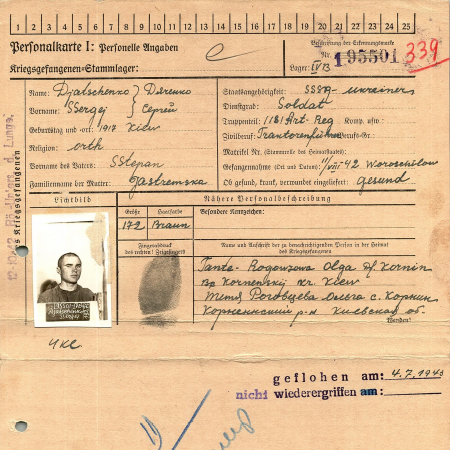 1 2 3 4 5 6 7 8 9 10 11 12 13 14 15 16 17 18 19 20 21 22 23 24 25
Personalkarte I: Personelle Angaben
Kriegsgefangenen-Stammlager:
Beschriftung der Erkennungsmarke
Nr. 195501 339
Lager: IV B
Name: Djatschenko Дяченко
Vorname: SSergej Сергей
Geburtstag und -ort: 1917 Kiew
Religion: orth
Vorname des Vaters: SStepan
Familienname der Mutter: Jastremska
Staatsangehörigkeit: SSSR
Dienstgrad: Soldat
Truppenteil: 1181 Art. Reg Komp. usw.:
Zivilberuf: Traktorenführer Berufs-Gr.:
Matrikel Nr. (Stammrolle des Heimatstaates):
Gefangennahme (Ort und Datum): 42 Woroschilow
Ob gesund, krank, verwundet eingeliefert: gesund
Lichtbild
Nähere Personalbeschreibung
Größe
Haarfarbe
Besondere Kennzeichen:
172 Braun
Fingerabdruck
des rechten! Zeigefingers!
Name und Anschrift der zu benachrichtigenden Person in der Heimat
des Kriegsgefangenen
Tante: Olga Df. Kornin
Kornenskij Kr. Kiew
Тетя Ольга с. Корнин
р-н Киевская об.
geflohen am: 4.7.1943
nicht wiederergriffen am: